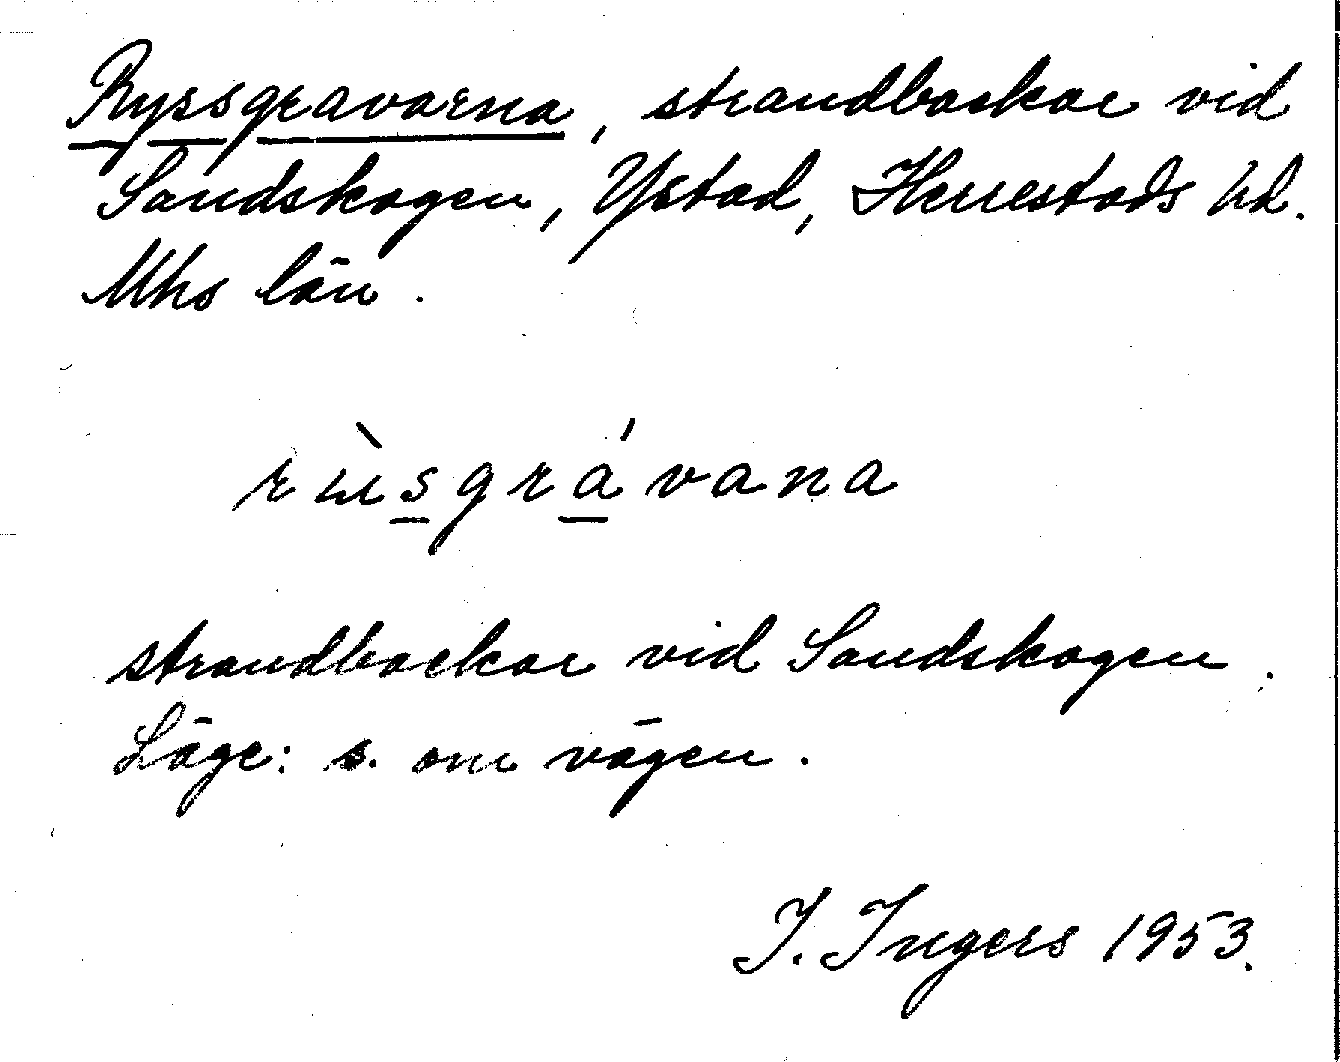 Ryssgravarna, strandbackar vid
Sandskogen, Ystad, Herrestads hd.
Mhs län.
rɯ̀sgrávana
strandbackar vid Sandskogen.
Läge: s. om vägen.
I. Ingers 1953.